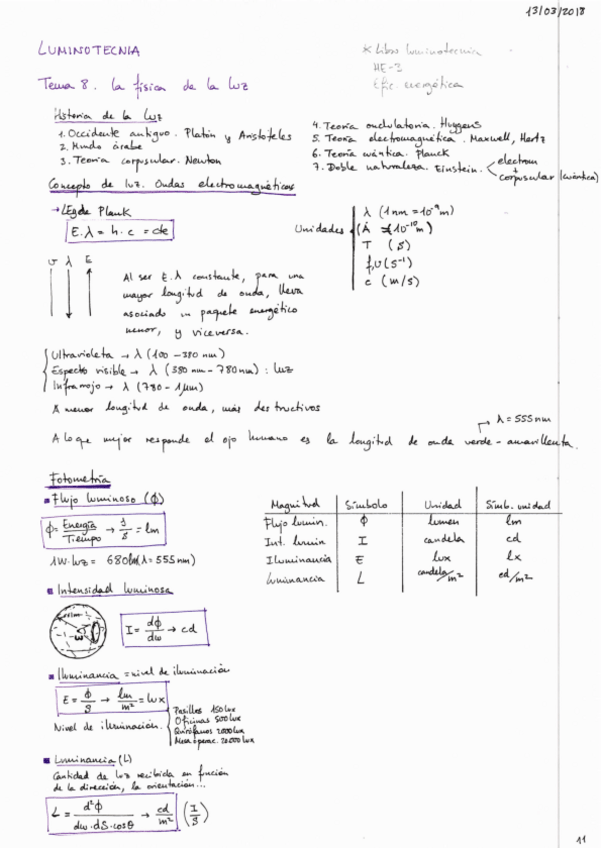 13/03/2018
LUMINOTECNIA
* Libro luminotecnia
HE-3
Efic. energética
Tema 8. La física de la luz
Historia de la luz
1. Occidente antiguo. Platón y Aristóteles
2. Mundo árabe
3. Teoría corpuscular. Newton
4. Teoría ondulatoria. Huygens
5. Teoría electromagnética. Maxwell, Hertz
6. Teoría cuántica. Planck
7. Doble naturaleza. Einstein. electrom + corpuscular (cuántica)
Concepto de luz. Ondas electromagnéticas
→ Ley de Plank
E.λ = h.c = cte
Unidades
λ (1nm = 10⁻⁹m)
(Å = (10⁻¹⁰m)
T (s)
f,υ (s⁻¹)
c (m/s)
υ λ E
Al ser E.λ constante, para una
mayor longitud de onda, lleva
asociado un paquete energético
menor, y viceversa.
Ultravioleta → λ (100 – 380 nm)
Espectro visible → λ (380 nm – 780 nm) : luz
Infrarrojo → λ (780 – 1μm)
A menor longitud de onda, más destructivos
λ = 555 nm
A lo que mejor responde el ojo humano es la longitud de onda verde - amarillenta.
Fotometría
Flujo luminoso (ϕ)
ϕ = Energía/Tiempo → J/s = lm
1W·luz = 680lm (λ = 555 nm)
Magnitud Símbolo Unidad Símb. unidad
Flujo lumin. ϕ lumen lm
Int. lumin I candela cd
Iluminancia E lux lx
Luminancia L candela/m² cd/m²
Intensidad luminosa
ω
I = dϕ/dω → cd
Iluminancia = nivel de iluminación
E = ϕ/S → lm/m² = lux
Nivel de iluminación.
Pasillos 150 lux
Oficinas 500 lux
Quirófanos 2000 lux
Mesa operac. 20.000 lux
Luminancia (L)
Cantidad de luz recibida en función
de la dirección, la orientación...
L = d²ϕ/dω·dS·cosθ → cd/m² (I/S)
11